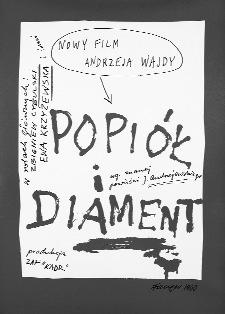 NOWY FILM
ANDRZEJA WAJDY
w rolach głównych:
ZBIGNIEW CYBULSKI
EWA KRZYŻEWSKA i inni
POPIÓŁ
i
wg. znanej
powieści J. Andrzejewskiego
DIAMENT
produkcja
ZAF "KADR"
1960